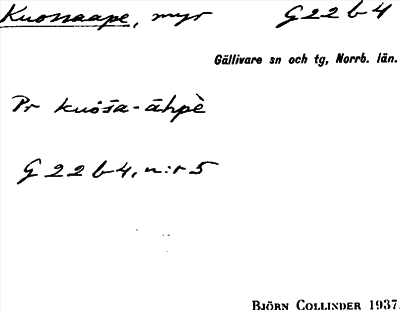 Kuossaape, myr G 22 b 4
Gällivare sn och tg, Norrb. län.
Pr kuòs̄a-āhpè
G 22 b 4, n:r 5
BJÖRN COLLINDER 1937.